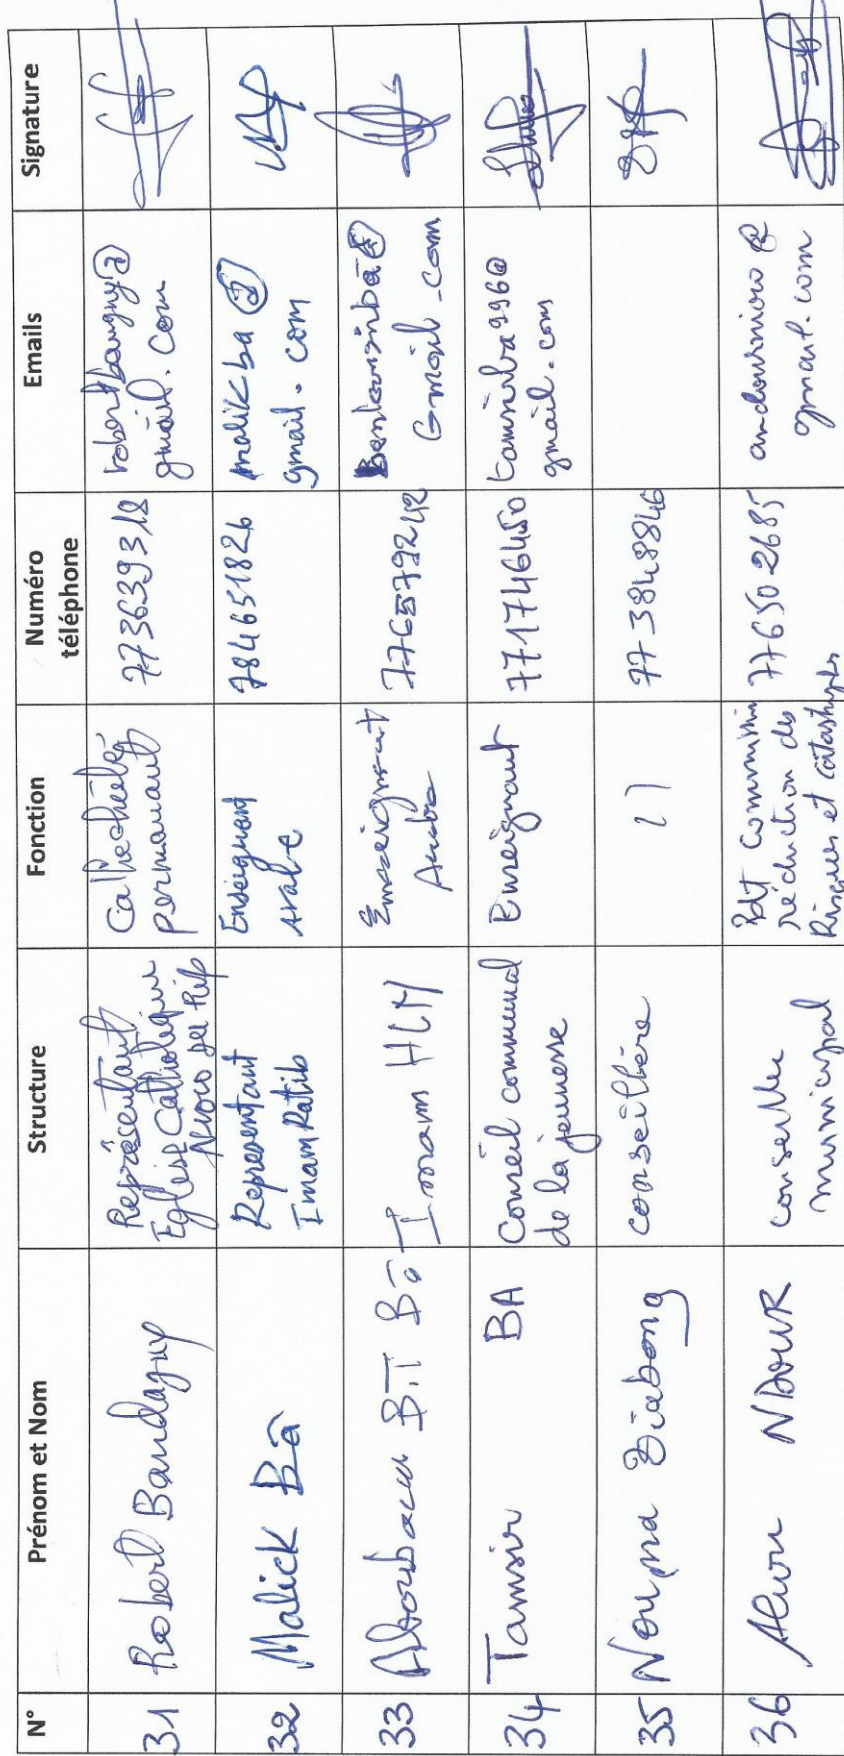 N° Prénom et Nom Structure Fonction Numéro téléphone Emails Signature
31 Robert Bandagny Représentant Eglise Catholique Nioro du Rip Cathéchiste permanant 773639318 gmail.com
32 Malick Bâ Representant Imam Ratib Enseignant arabe 784651826 malikba@gmail.com
33 Bâ Imam HLM Enseignant Arabe 776579242 Gmail.com
34 Tamsir BA Conseil communal de la jeunesse Enseignant 771746450 tamsirba996@gmail.com
35 Diabong conseillère 11 773848846
36 Aliou NDOUR conseiller municipal Pdt Commission réduction des Risques et catastrophes 776502685 gmail.com